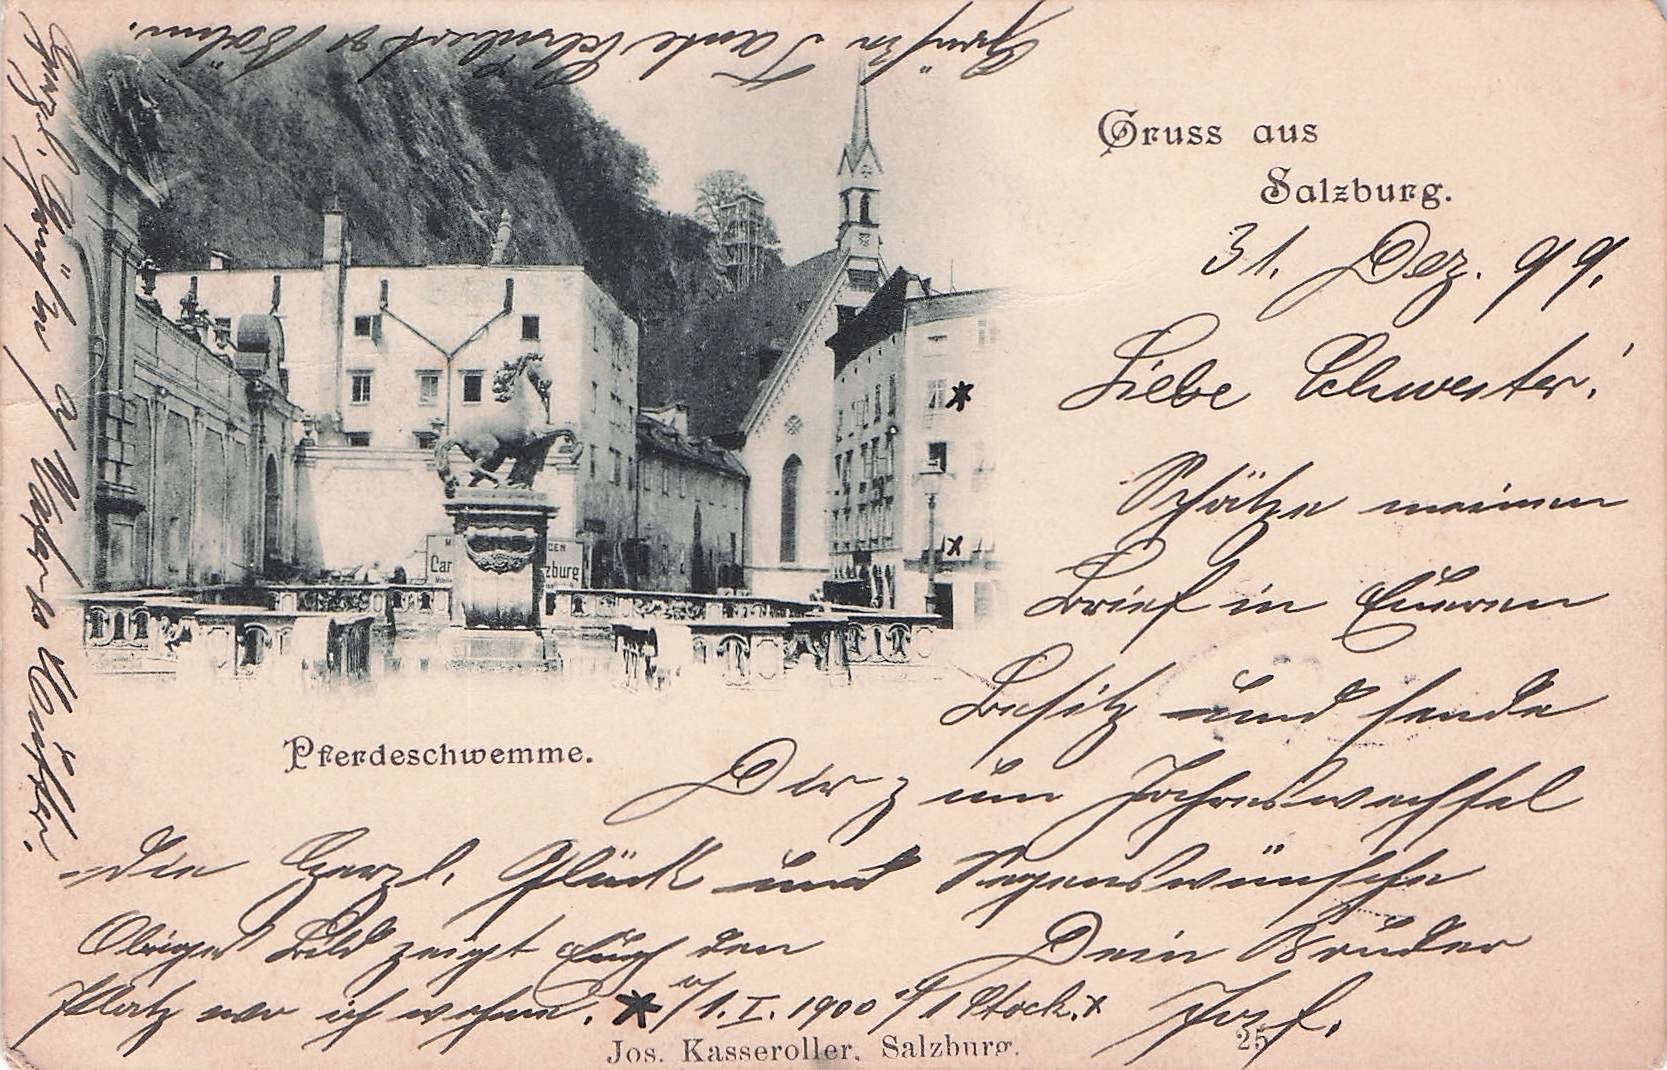 Gruss aus
Salzburg.
31. Dez. 99.
Liebe Schwester!
Schätze meinen
Brief in Eueren
Besitz und sende
Dir zum Jahreswechsel
die herzl. Glück und Segenswünsche
Dein Bruder
Josef.
Obiges Bild zeigt Euch den
Platz wo ich wohne. * 1. I. 1900 1 Stock. x
Herzl. Grüße Vater & Mutter.
Grüße Tante
Pferdeschwemme.
Car
zburg
Jos. Kasseroller, Salzburg.
25